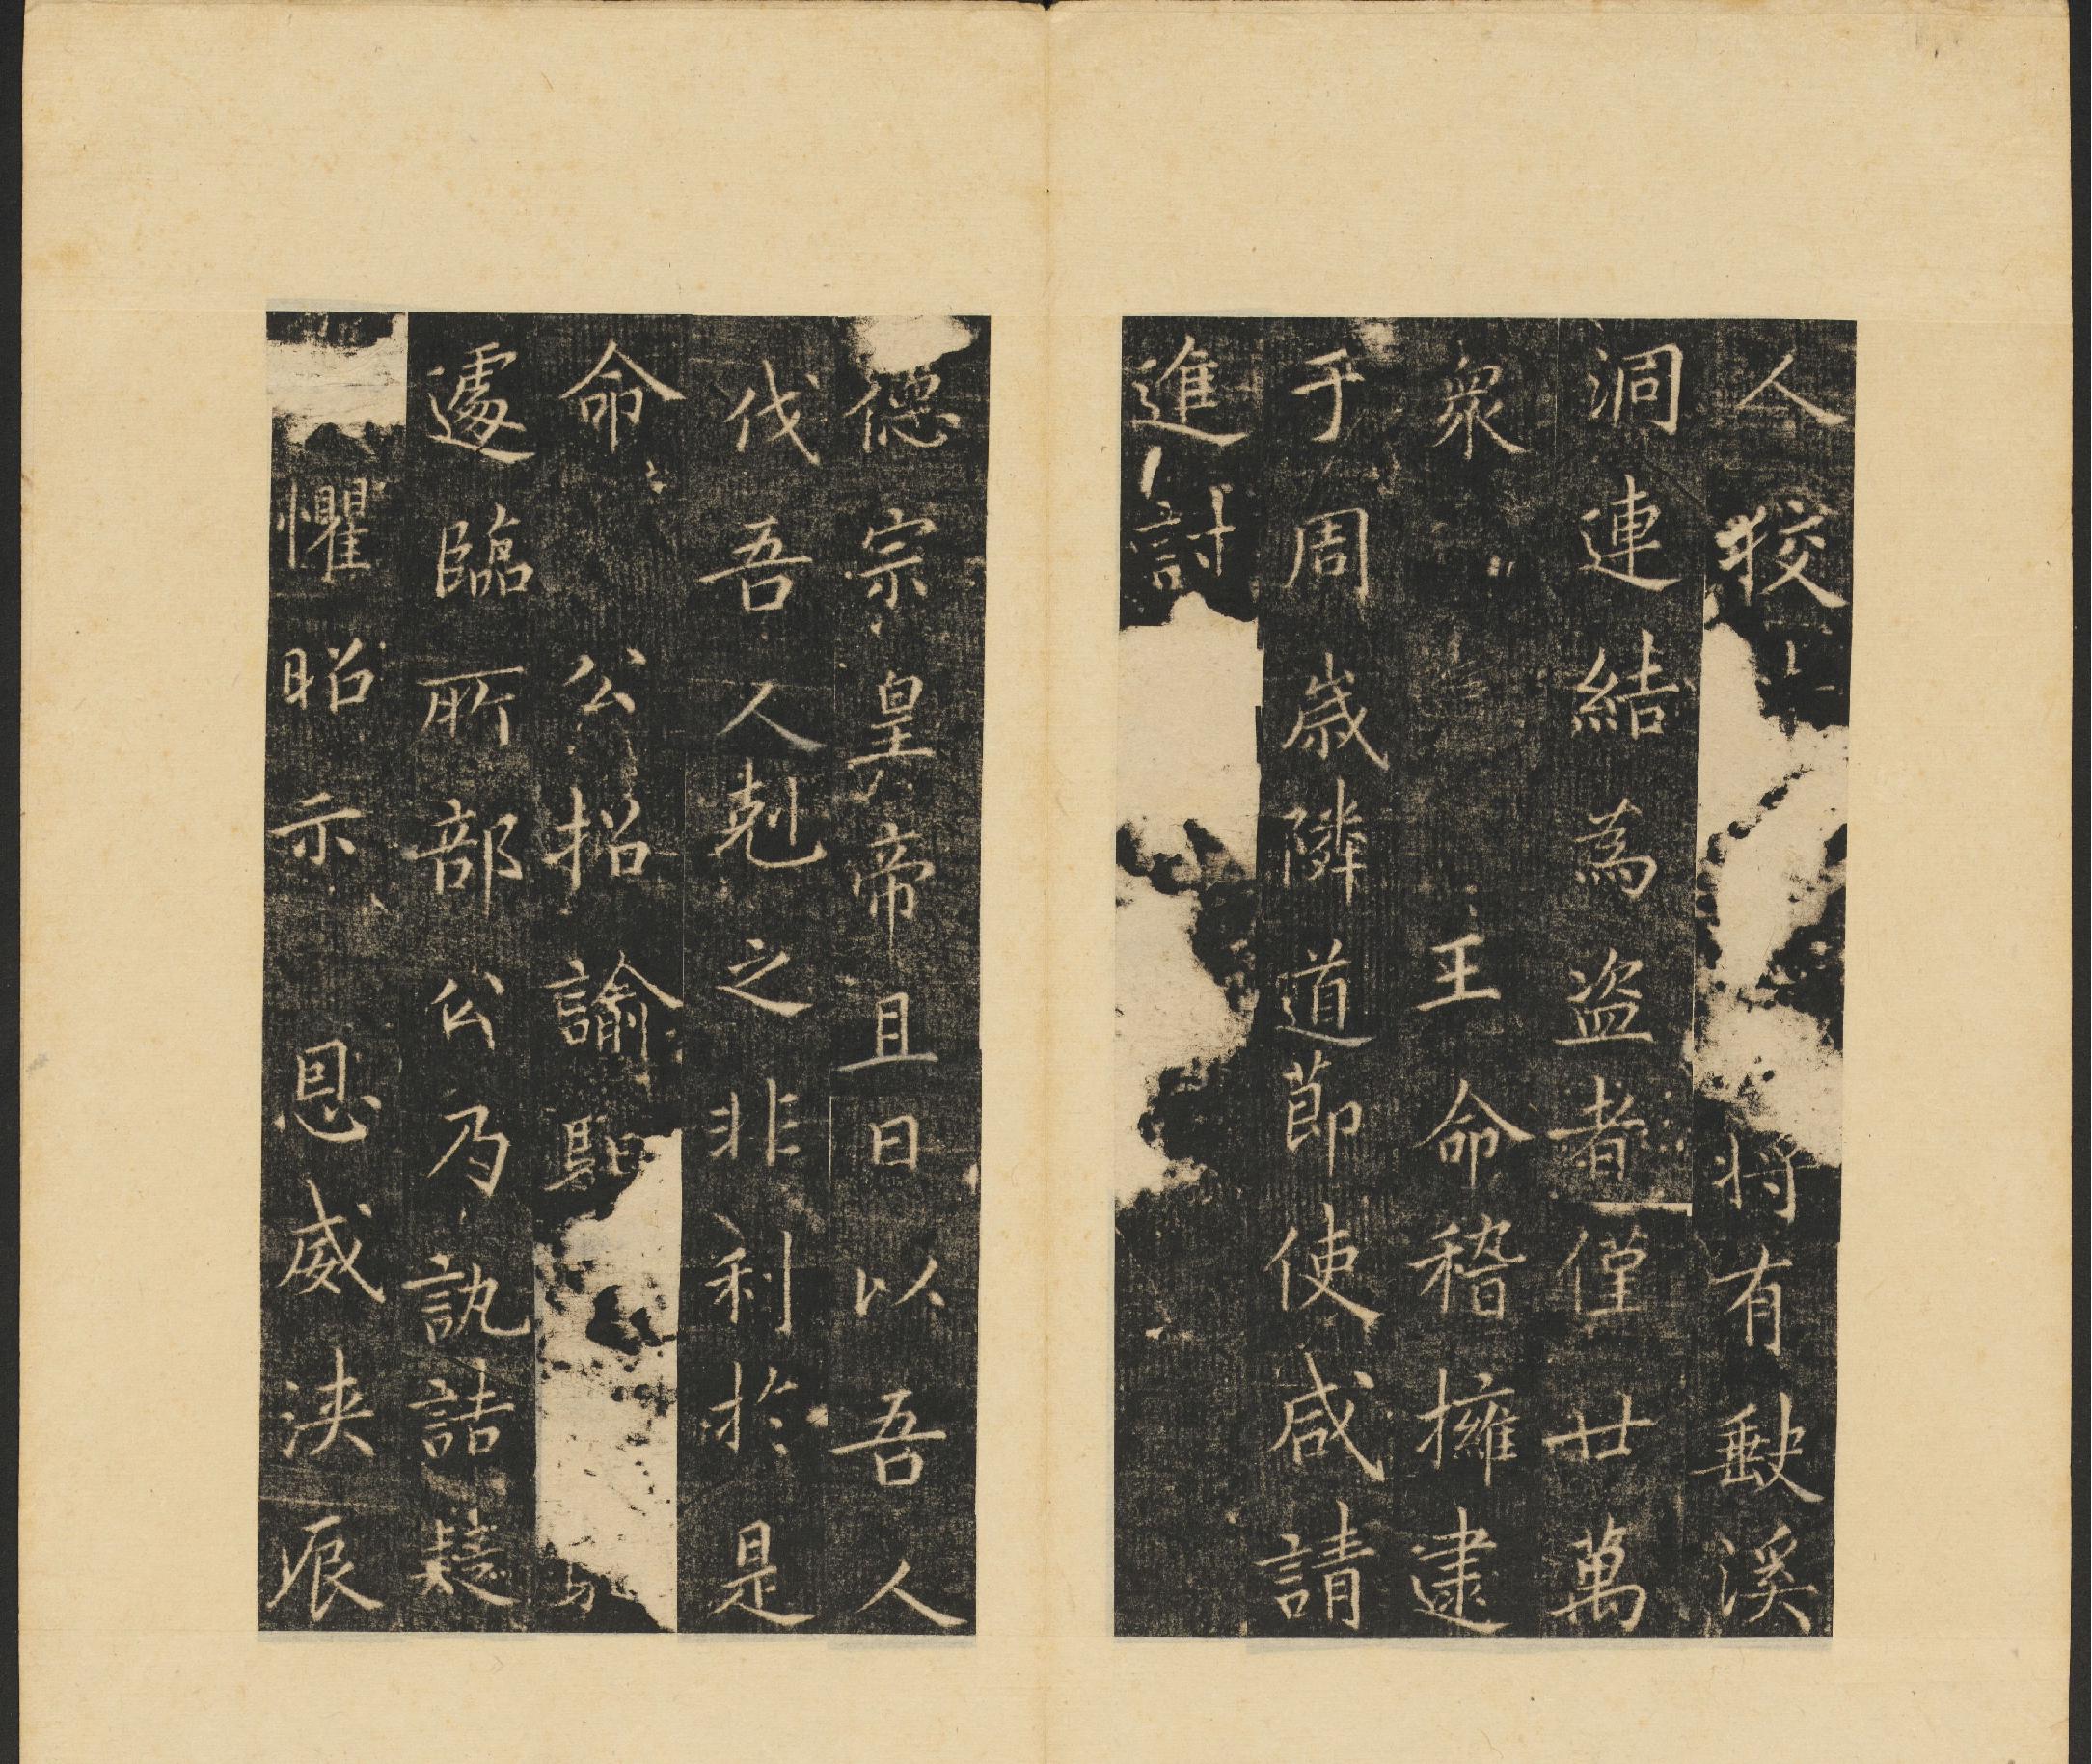 人狡將有獸溪
洞連結為盜者僅廿萬
衆王命稽擁逮
于周歲隣道節使咸請
進討
德宗皇帝且曰以吾人
伐吾人剋之非利於是
命公招諭聖
遽臨所部公乃訊詰疑
懼昭示恩威浹辰